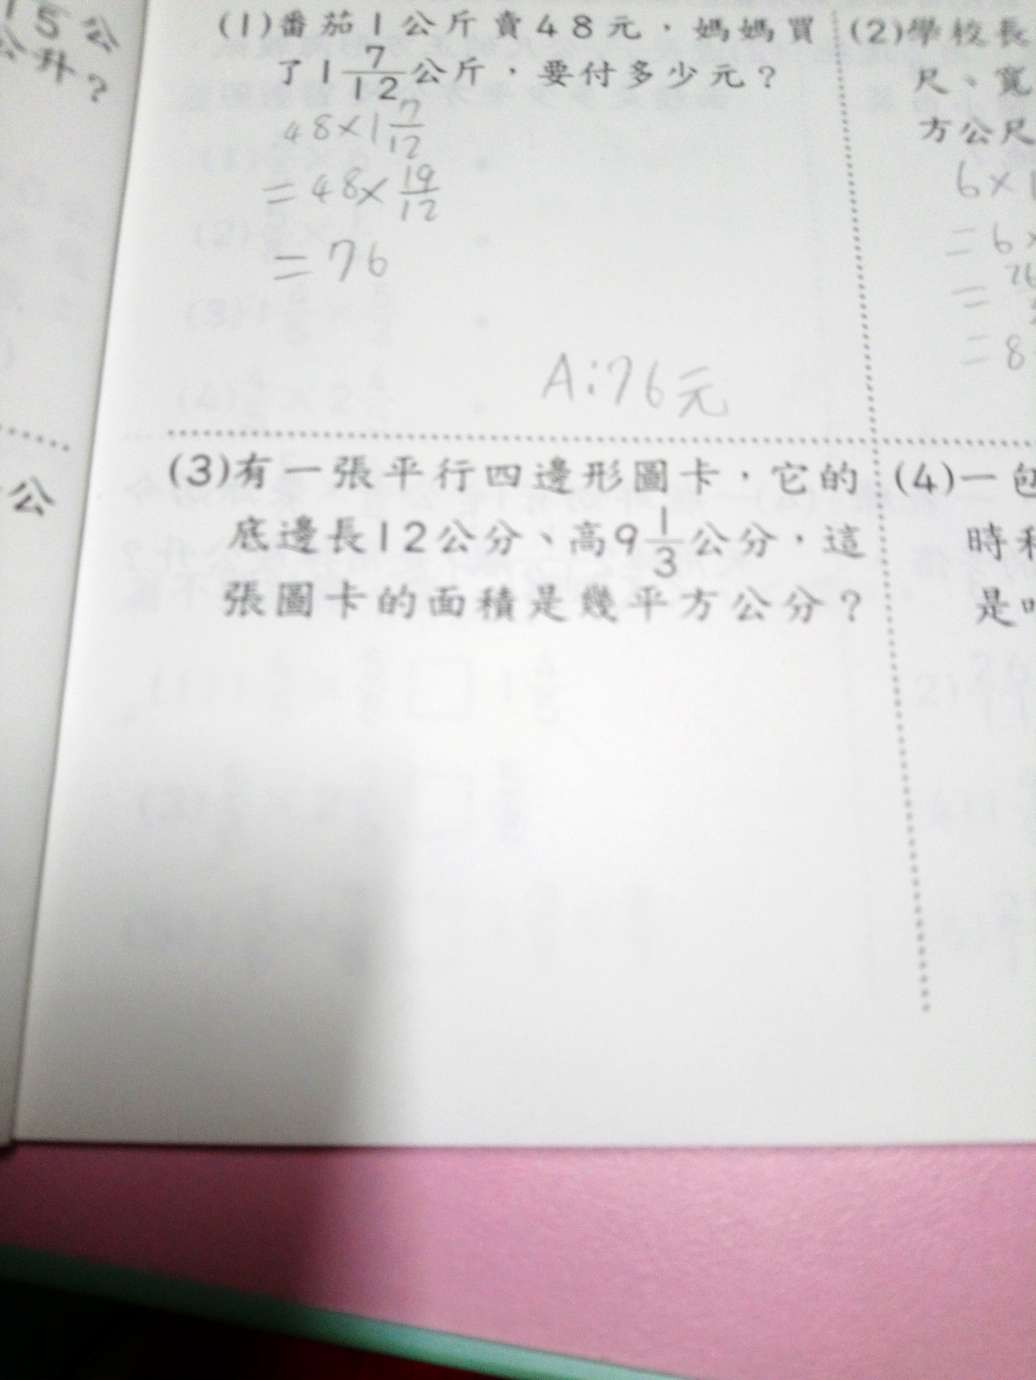 15公
公升？
(1)番茄1公斤賣48元，媽媽買
了1 7/12公斤，要付多少元？
48×1 7/12
=48×19/12
=76
A:76元
(2)學校長
尺、寬
方公尺
6×1
=6×
=
=8
公
(3)有一張平行四邊形圖卡，它的
底邊長12公分、高9 1/3公分，這
張圖卡的面積是幾平方公分？
(4)一包
時
是